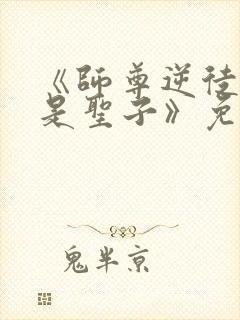 《師尊逆徒
是聖子》免
鬼半京